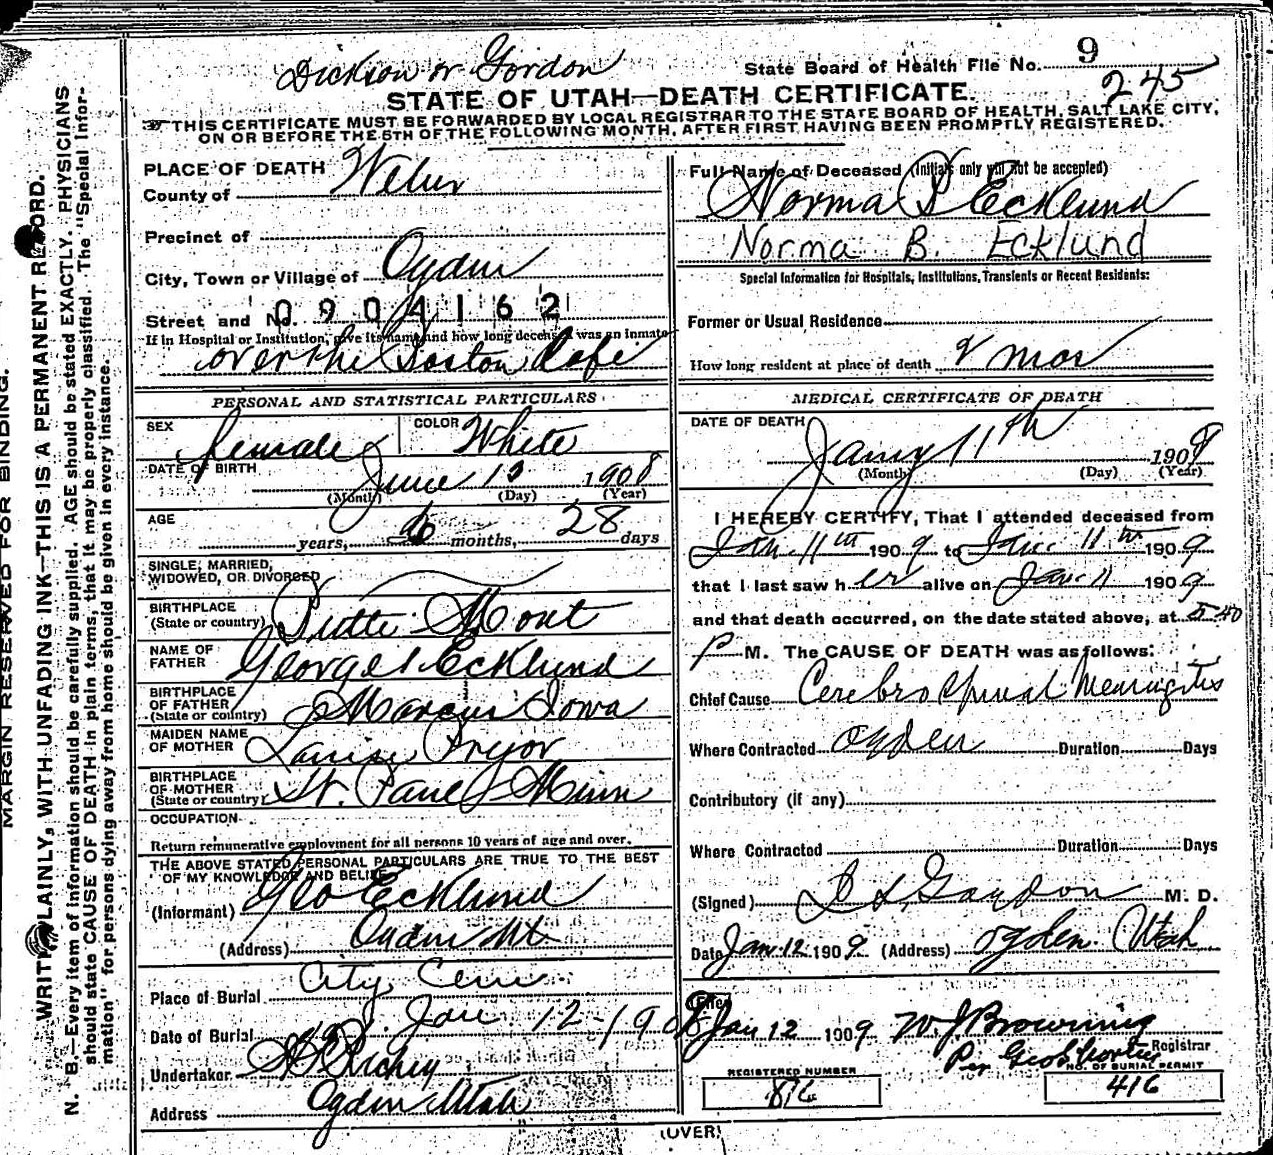 Dickson or Gordon
State Board of Health File No. 9
245
STATE OF UTAH—DEATH CERTIFICATE.
THIS CERTIFICATE MUST BE FORWARDED BY LOCAL REGISTRAR TO THE STATE BOARD OF HEALTH, SALT LAKE CITY,
ON OR BEFORE THE 5TH OF THE FOLLOWING MONTH, AFTER FIRST HAVING BEEN PROMPTLY REGISTERED.
MARGIN RESERVED FOR BINDING.
WRITE PLAINLY, WITH UNFADING INK—THIS IS A PERMANENT RECORD.
N. B.—Every item of information should be carefully supplied. AGE should be stated EXACTLY. PHYSICIANS
should state CAUSE OF DEATH in plain terms, that it may be properly classified. The "Special Infor-
mation" for persons dying away from home should be given in every instance.
PLACE OF DEATH
County of Weber
Precinct of
City, Town or Village of Ogden
Street and No. 0904162
If in Hospital or Institution, give its name and how long deceased was an inmate
over the Boston Cafe
PERSONAL AND STATISTICAL PARTICULARS
SEX female COLOR White
DATE OF BIRTH June 13 1908
(Month) (Day) (Year)
AGE years, 6 months, 28 days
SINGLE, MARRIED,
WIDOWED, OR DIVORCED
BIRTHPLACE
(State or country) Butte Mont
NAME OF
FATHER George Ecklund
BIRTHPLACE
OF FATHER
(State or country) Marcus Iowa
MAIDEN NAME
OF MOTHER Louise Pryor
BIRTHPLACE
OF MOTHER
(State or country) St. Paul Minn
OCCUPATION
Return remunerative employment for all persons 10 years of age and over.
THE ABOVE STATED PERSONAL PARTICULARS ARE TRUE TO THE BEST
OF MY KNOWLEDGE AND BELIEF
(Informant) Geo Ecklund
(Address) Ogden Ut
Place of Burial City Cem
Date of Burial Jan 12-1908
Undertaker Richey
Address Ogden Utah
Full Name of Deceased (Initials only will not be accepted)
Norma B Ecklund
Norma B. Ecklund
Special Information for Hospitals, Institutions, Transients or Recent Residents:
Former or Usual Residence
How long resident at place of death mos
MEDICAL CERTIFICATE OF DEATH
DATE OF DEATH
Jany 11th 1909
(Month) (Day) (Year)
I HEREBY CERTIFY, That I attended deceased from
Jan. 11th 1909 to Jan. 11th 1909
that I last saw her alive on Jan 11 1909
and that death occurred, on the date stated above, at 5.40
P M. The CAUSE OF DEATH was as follows:
Chief Cause Cerebro Spinal Meningitis
Where Contracted Ogden Duration Days
Contributory (if any)
Where Contracted Duration Days
(Signed) Gordon M. D.
Date Jan 12 1909 (Address) Ogden Utah
Filed Jan 12 1909 W J Browning
Registrar
Per Geo
REGISTERED NUMBER
NO. OF BURIAL PERMIT
416
(OVER)